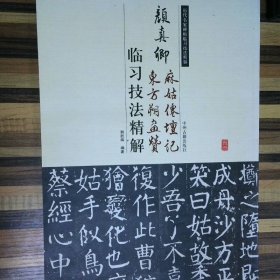 历代名家碑帖临习技法精解
颜真卿
麻姑仙坛记
东方朔画赞
临习技法精解
编著
中州古籍出版社
樽之墮地即
成丹沙方平
笑曰姑故年
少吾了不喜
復作此曹狡
獪變化也麻
姑手似鳥爪
蔡經心中